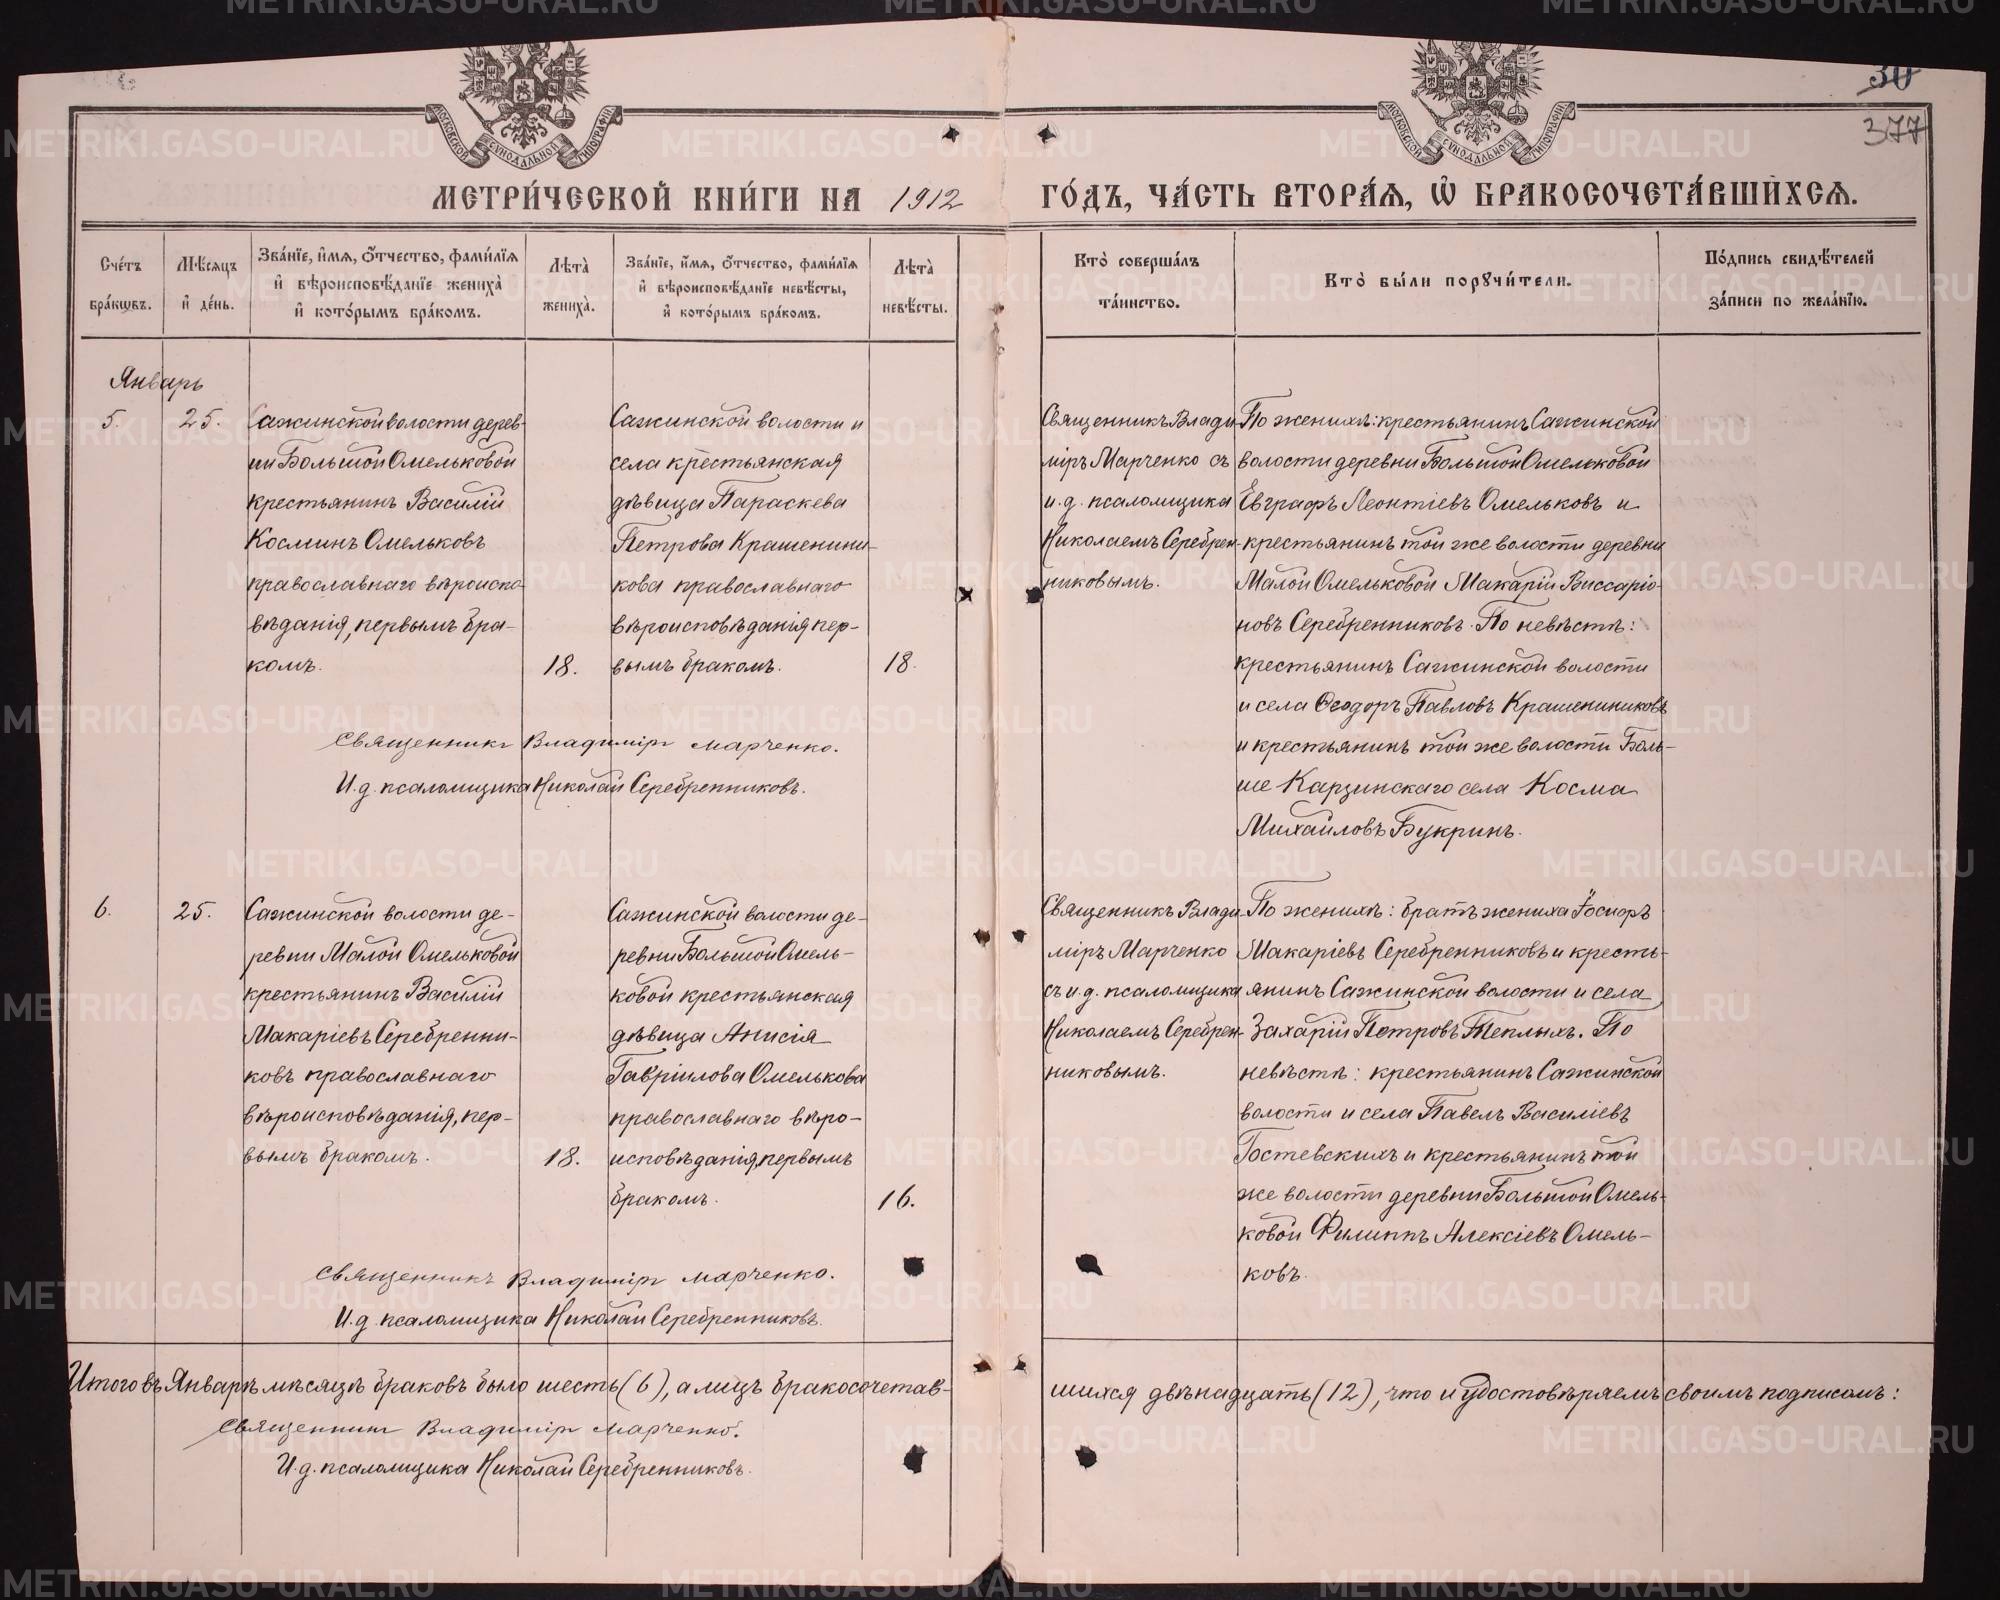 30
377
МОСКОВСКОЙ СѴНОДАЛЬНОЙ ТИПОГРАФІИ
МОСКОВСКОЙ СѴНОДАЛЬНОЙ ТИПОГРАФІИ
МЕТРИ́ЧЕСКОЙ КНИ́ГИ НА 1912 ГО́ДЪ, ЧА́СТЬ ВТОРА́Ѧ, Ѡ БРАКОСОЧЕТА́ВШИХСѦ.
Сче́тъ бра́кѡвъ.
Мѣ́сѧцъ и де́нь.
Зва́нїе, и́мѧ, ѻ҆́тчество, фами́лїѧ и вѣроисповѣ́данїе жениха̀ и кото́рымъ бра́комъ.
Лѣта̀ жениха̀.
Зва́нїе, и́мѧ, ѻ҆́тчество, фами́лїѧ и вѣроисповѣ́данїе невѣ́сты, и кото́рымъ бра́комъ.
Лѣта̀ невѣ́сты.
Кто̀ соверша́лъ та́инство.
Кто̀ бы́ли порꙋчи́тели.
По́дпись свидѣ́телей за́писи по жела́нїю.
Январь
5.
25.
Сажинской волости дерев-
ни Большой Омельковой
крестьянинъ Василій
Косминъ Омельковъ
православнаго вѣроиспо-
вѣданія, первымъ бра-
комъ.
18.
Сажинской волости и
села крестьянская
дѣвица Параскева
Петрова Крашенини-
кова православнаго
вѣроисповѣданія пер-
вымъ бракомъ.
18.
Священникъ Влади
міръ Марченко съ
и.д. псаломщика
Николаемъ Серебрен-
никовымъ.
По женихѣ: крестьянинъ Сажинской
волости деревни Большой Омельковой
Евграфъ Леонтіевъ Омельковъ и
крестьянинъ той же волости деревни
Малой Омельковой Макарій Виссаріо-
новъ Серебренниковъ. По невѣстѣ:
крестьянинъ Сажинской волости
и села Ѳеодоръ Павловъ Крашениниковъ
и крестьянинъ той же волости Боль-
ше Карзинскаго села Косма
Михайловъ Букринъ.
Священникъ Владиміръ Марченко.
И.д. псаломщика Николай Серебренниковъ.
6.
25.
Сажинской волости де-
ревни Малой Омельковой
крестьянинъ Василій
Макаріевъ Серебренни-
ковъ православнаго
вѣроисповѣданія, пер-
вымъ бракомъ.
18.
Сажинской волости де-
ревни Большой Омель-
ковой крестьянская
дѣвица Анисія
Гавріилова Омелькова
православнаго вѣро-
исповѣданія, первымъ
бракомъ.
16.
Священникъ Влади
міръ Марченко
съ и.д. псаломщика
Николаемъ Серебрен-
никовымъ.
По женихѣ: братъ жениха Іосифъ
Макаріевъ Серебренниковъ и кресть-
янинъ Сажинской волости и села
Захарій Петровъ Теплыхъ. По
невѣстѣ: крестьянинъ Сажинской
волости и села Павелъ Василіевъ
Гостевскихъ и крестьянинъ той
же волости деревни Большой Омель-
ковой Филиппъ Алексіевъ Омель-
ковъ.
Священникъ Владиміръ Марченко.
И.д. псаломщика Николай Серебренниковъ.
Итого въ Январѣ мѣсяцѣ браковъ было шесть (6), а лицъ бракосочетав-
шихся двѣнадцать (12), что и удостовѣряемъ своимъ подписомъ:
Священникъ Владиміръ Марченко.
И.д. псаломщика Николай Серебренниковъ.
METRIKI.GASO-URAL.RU